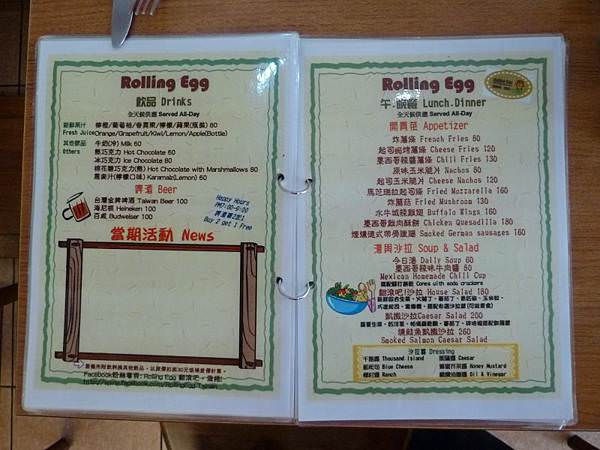 Rolling Egg
飲品 Drinks
全天候供應 Served All-Day
新鮮果汁 檸檬/葡萄柚/奇異果/檸檬/蘋果(瓶裝) 80
Fresh Juice Orange/Grapefruit/Kiwi/Lemon/Apple(Bottle)
其他飲品 牛奶(冷) Milk 60
Others 熱巧克力 Hot Chocolate 60
冰巧克力 Ice Chocolate 80
棉花糖巧克力(熱) Hot Chocolate with Marshmallows 80
(檸檬口味) (Lemon) 60
啤酒 Beer
台灣金牌啤酒 Taiwan Beer 100
海尼根 Heineken 100
百威 Budweiser 100
Happy Hours
啤酒買2送1
Buy 2 get 1 Free
當期活動 News
Rolling Egg
午.晚餐 Lunch.Dinner
全天候供應 Served All-Day
開胃菜 Appetizer
炸薯條 French Fries 80
起司焗烤薯條 Cheese Fries 120
墨西哥辣醬薯條 Chili Fries 130
原味玉米脆片 Nachos 80
起司玉米脆片 Cheese Nachos 120
馬茲瑞拉起司條 Fried Mozzarella 160
炸蘑菇 Fried Mushroom 130
水牛城辣雞翅 Buffalo Wings 160
墨西哥雞肉酥餅 Chicken Quesadilla 180
煙燻德式帶勁臘腸 Smoked German sausages 160
湯與沙拉 Soup & Salad
今日湯 Daily Soup 60
墨西哥辣味牛肉醬 80
Mexican Homemade Chili Cup
搭配蘇打餅乾 Comes with soda crackers
翻滾吧!沙拉 House Salad 180
凱撒沙拉Caesar Salad 200
燻鮭魚凱撒沙拉 260
Smoked Salmon Caesar Salad
沙拉醬 Dressing
千島醬 Thousand Island 凱薩醬 Caesar
藍起司 Blue Cheese 蜂蜜芥茉醬 Honey Mustard
Ranch Oil & Vinegar